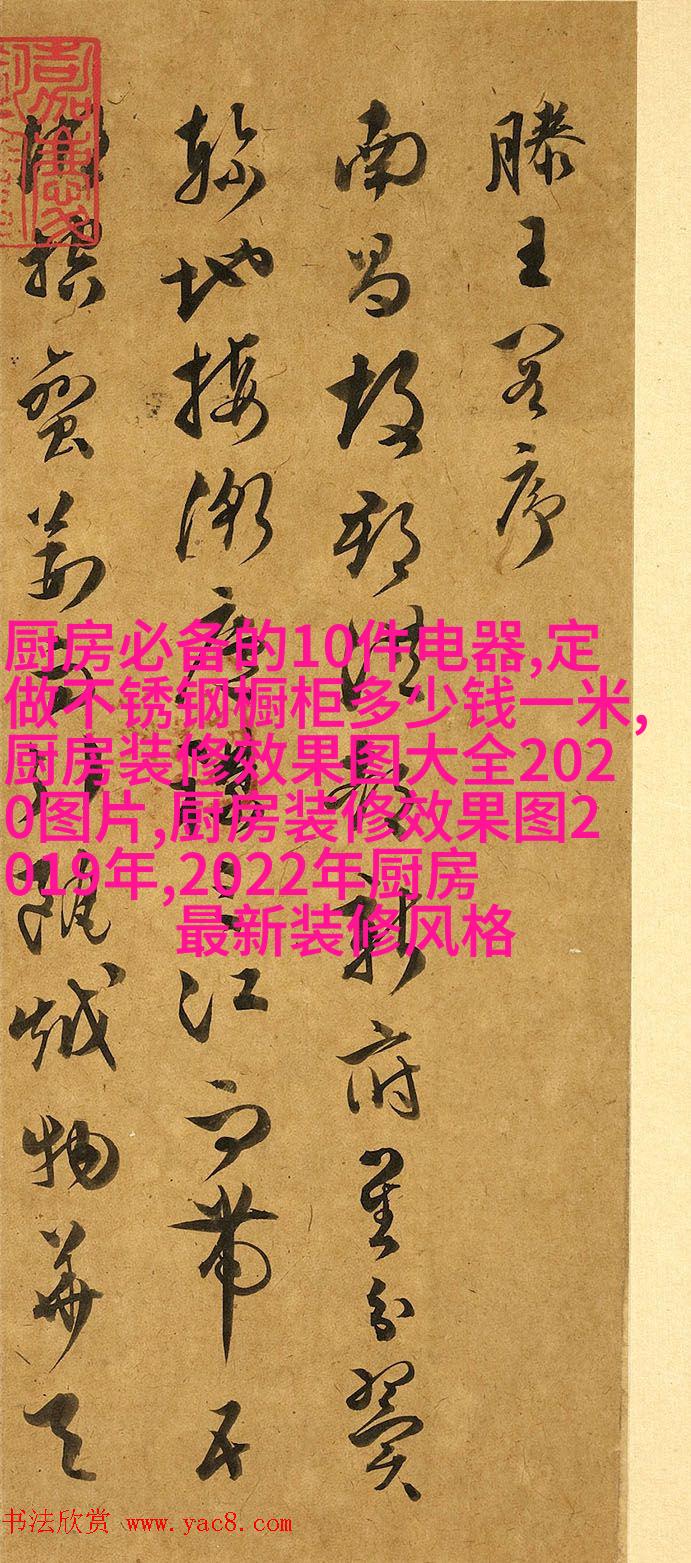 滕王閣序
南昌故郡洪都新府星分翼
軫地接衡廬襟三江而帶五
湖控蠻荊而引甌越物華天
厨房必备的10件电器,定
做不锈钢橱柜多少钱一米,
厨房装修效果图大全202
0图片,厨房装修效果图2
019年,2022年厨房
最新装修风格
书法欣赏 www.yac8.com